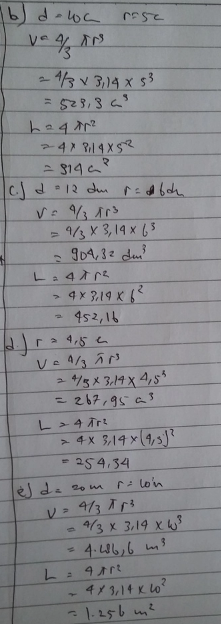 b) d = 10 c r = 5 c
V = 4/3 π r³
= 4/3 x 3,14 x 5³
= 523,3 c³
L = 4 π r²
= 4 x 3,14 x 5²
= 314 c²
c.) d = 12 dm r = 6 dm
V = 4/3 π r³
= 4/3 x 3,14 x 6³
= 904,32 dm³
L = 4 π r²
= 4 x 3,14 x 6²
= 452,16
d.) r = 4,5 c
V = 4/3 π r³
= 4/3 x 3,14 x 4,5³
= 267,95 c³
L = 4 π r²
= 4 x 3,14 x (4,5)²
= 254,34
e) d = 20 m r = 10 m
V = 4/3 π r³
= 4/3 x 3,14 x 10³
= 4.186,6 m³
L = 4 π r²
= 4 x 3,14 x 10²
= 1.256 m²